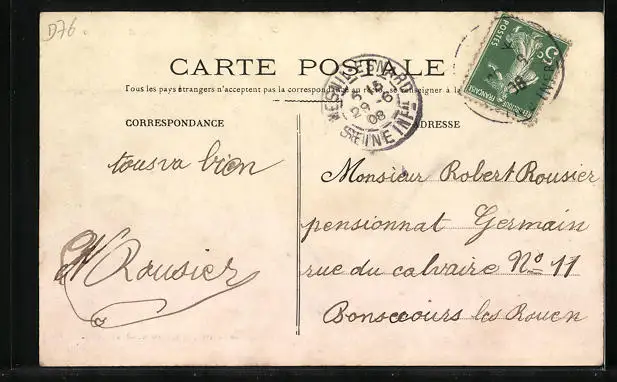 D76
CARTE POSTALE
Tous les pays étrangers n'acceptent pas la correspondance au recto, se renseigner à la
CORRESPONDANCE
ADRESSE
POSTES
5
RÉPUBLIQUE FRANÇAISE
MESNIL ESNARD
08
SEINE INF
tous va bien
Rousier
Monsieur Robert Rousier
pensionnat Germain
rue du calvaire No 11
Bonsecours les Rouen